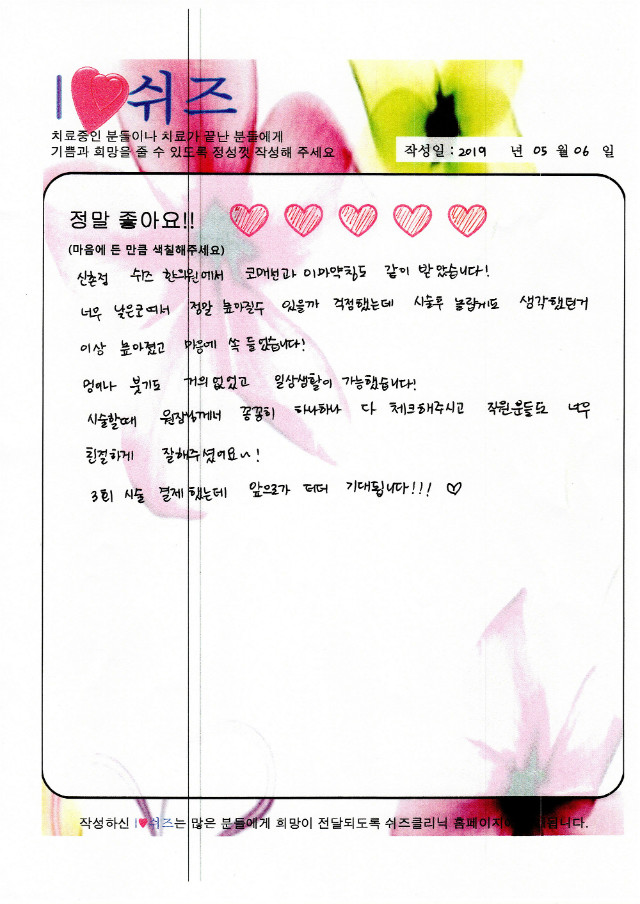 I ♥ 쉬즈
치료중인 분들이나 치료가 끝난 분들에게
기쁨과 희망을 줄 수 있도록 정성껏 작성해 주세요
작성일 : 2019 년 05 월 06 일
정말 좋아요!!
(마음에 든 만큼 색칠해주세요)
신촌점 쉬즈 한의원에서 코매선과 이마약침도 같이 받았습니다!
너무 낮은코여서 정말 높아질수 있을까 걱정했는데 시술후 놀랍게도 생각했던거
이상 높아졌고 마음에 쏙 들었습니다!
멍이나 붓기도 거의 없었고 일상생활이 가능했습니다!
시술할때 원장님께서 꼼꼼히 하나하나 다 체크해주시고 직원분들도 너무
친절하게 잘해주셨어요~!
3회 시술 결제했는데 앞으로가 더더 기대됩니다!!! ♡
작성하신 I♥쉬즈는 많은 분들에게 희망이 전달되도록 쉬즈클리닉 홈페이지